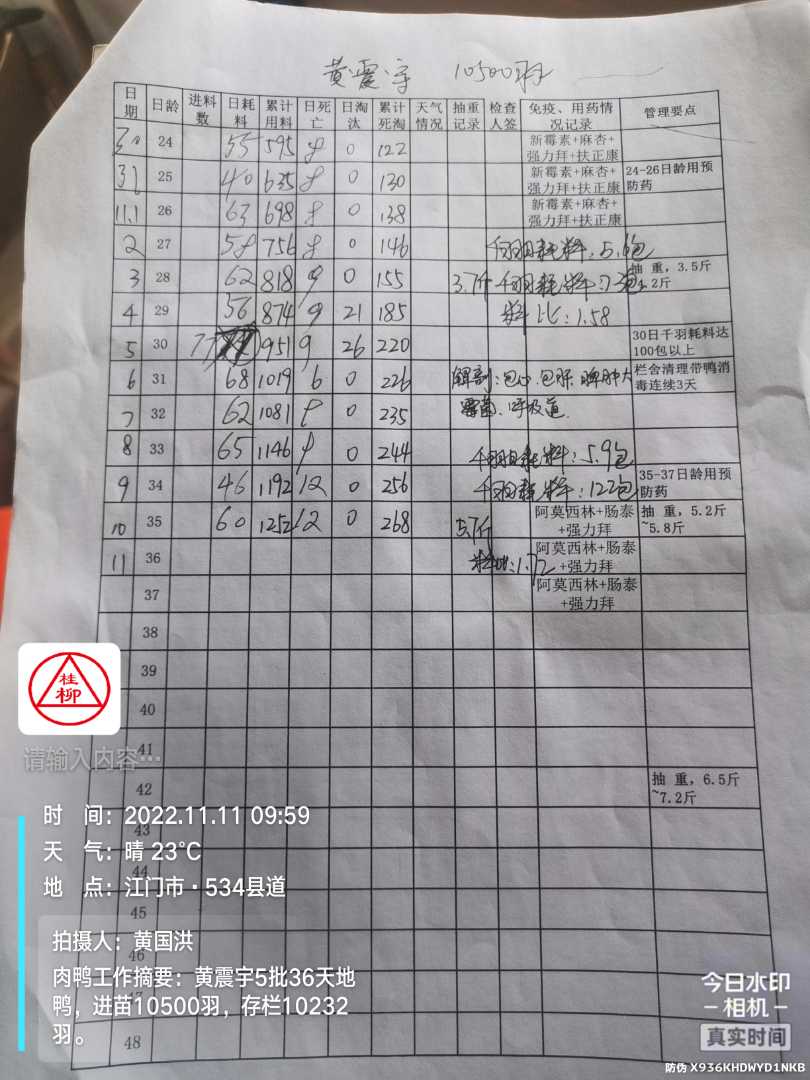 黄震宇 10500羽
日期 日龄 进料数 日耗料 累计用料 日死亡 日淘汰 累计死淘 天气情况 抽重记录 检查人签 免疫、用药情况记录 管理要点
30 24 55 595 8 0 122 新霉素+麻杏+强力拜+扶正康
31 25 40 635 8 0 130 新霉素+麻杏+强力拜+扶正康 24-26日龄用预防药
11.1 26 63 698 8 0 138 新霉素+麻杏+强力拜+扶正康
2 27 58 756 8 0 146 千羽日耗料:5.6包
3 28 62 818 9 0 155 3.7斤 千羽耗料: 抽 重,3.5斤
4 29 56 874 9 21 185 料比:1.58
5 30 77 951 9 26 220 30日千羽耗料达100包以上
6 31 68 1019 6 0 226 解剖:包心.包肝.脾肿大 栏舍清理带鸭消毒连续3天
7 32 62 1081 9 0 235 霉菌、呼吸道
8 33 65 1146 9 0 244 千羽日耗料:5.9包
9 34 46 1192 12 0 256 千羽耗料:122包 35-37日龄用预防药
10 35 60 1252 12 0 268 5.7斤 阿莫西林+肠泰+强力拜 抽 重,5.2斤~5.8斤
11 36 料比:1.72 阿莫西林+肠泰+强力拜
37 阿莫西林+肠泰+强力拜
38
39
40
41
42 抽 重,6.5斤~7.2斤
43
44
45
46
48
桂柳
请输入内容…
时 间:2022.11.11 09:59
天 气:晴 23°C
地 点:江门市·534县道
拍摄人:黄国洪
肉鸭工作摘要:黄震宇5批36天地
鸭,进苗10500羽,存栏10232
羽。
今日水印
相机
真实时间
防伪 X936KHDWYD1NKB